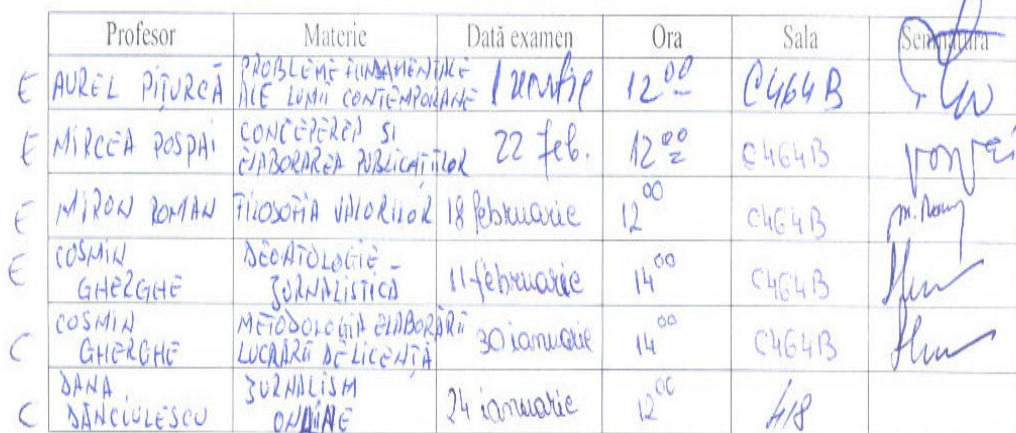 Profesor Materie Dată examen Ora Sala Semnătura
E AUREL PIȚURCĂ PROBLEME FUNDAMENTALE ALE LUMII CONTEMPORANE 1 martie 12 00 C464B
E MIRCEA POSPAI CONCEPEREA SI ELABORAREA PUBLICAȚIILOR 22 feb. 12 00 C464B
E MIRON ROMAN FILOSOFIA VALORILOR 18 februarie 12 00 C464B M. Roman
E COSMIN GHERGHE DEONTOLOGIE JURNALISTICĂ 11 februarie 14 00 C464B
C COSMIN GHERGHE METODOLOGIA ELABORĂRII LUCRĂRII DE LICENȚĂ 30 ianuarie 14 00 C464B
C DANA DĂNCIULESCU JURNALISM ONLINE 24 ianuarie 12 00 418